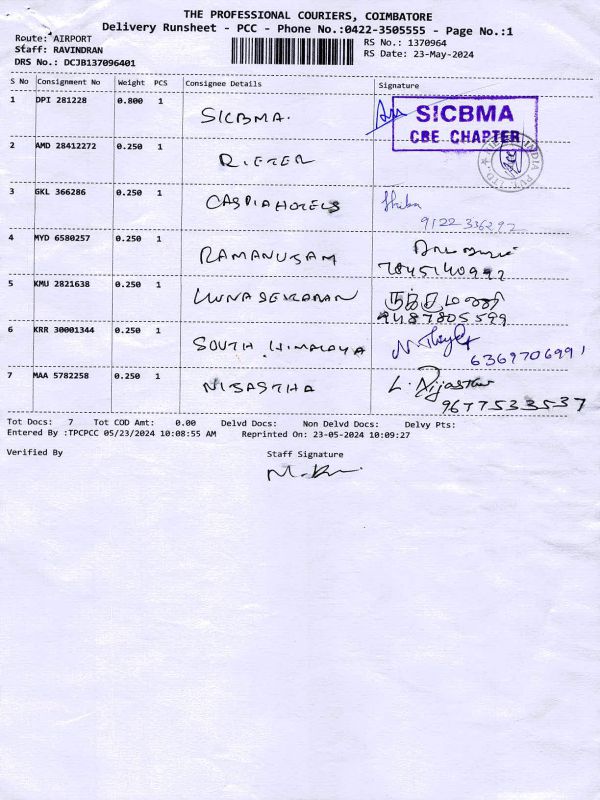 THE PROFESSIONAL COURIERS, COIMBATORE
Delivery Runsheet - PCC - Phone No.:0422-3505555 - Page No.:1
Route: AIRPORT
Staff: RAVINDRAN
DRS No.: DCJB137096401
RS No.: 1370964
RS Date: 23-May-2024
S No Consignment No Weight PCS Consignee Details Signature
1 DPI 281228 0.800 1 SICBMA. SICBMA
CBE CHAPTER
2 AMD 28412272 0.250 1 RIETER
3 GKL 366286 0.250 1 CASPIA HOTELS
9122336292
4 MYD 6580257 0.250 1 RAMANUJAM
7845140992
5 KMU 2821638 0.250 1 GUNASEKARAN
9487805599
6 KRR 30001344 0.250 1 SOUTH HIMALAYA
6369706991
7 MAA 5782258 0.250 1 NISASTHA L. Nijastha
9677533537
Tot Docs: 7 Tot COD Amt: 0.00 Delvd Docs: Non Delvd Docs: Delvy Pts:
Entered By :TPCPCC 05/23/2024 10:08:55 AM Reprinted On: 23-05-2024 10:09:27
Verified By Staff Signature